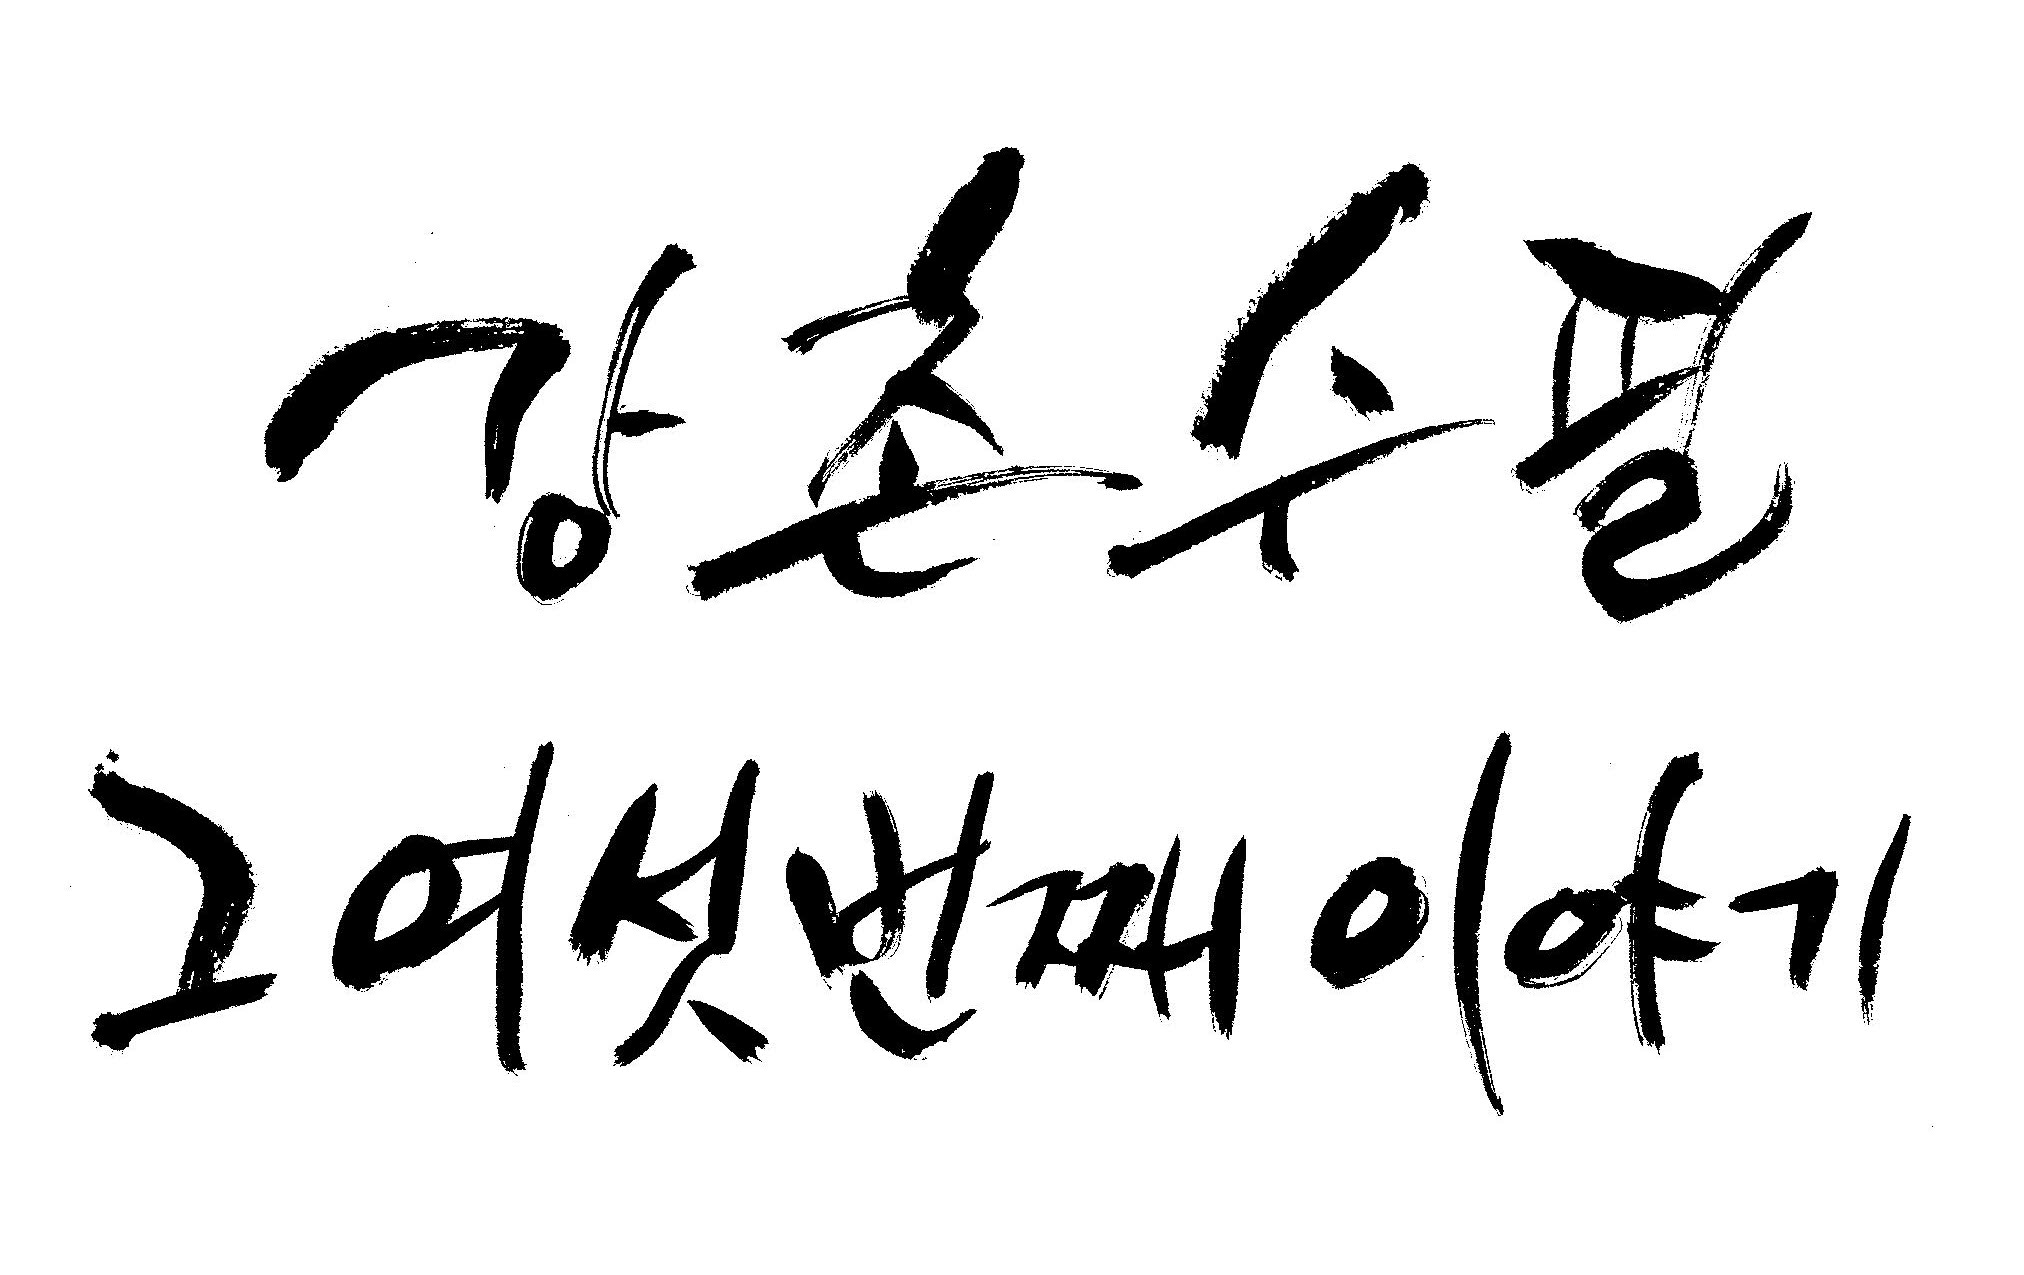 강촌수필
그 여섯번째 이야기